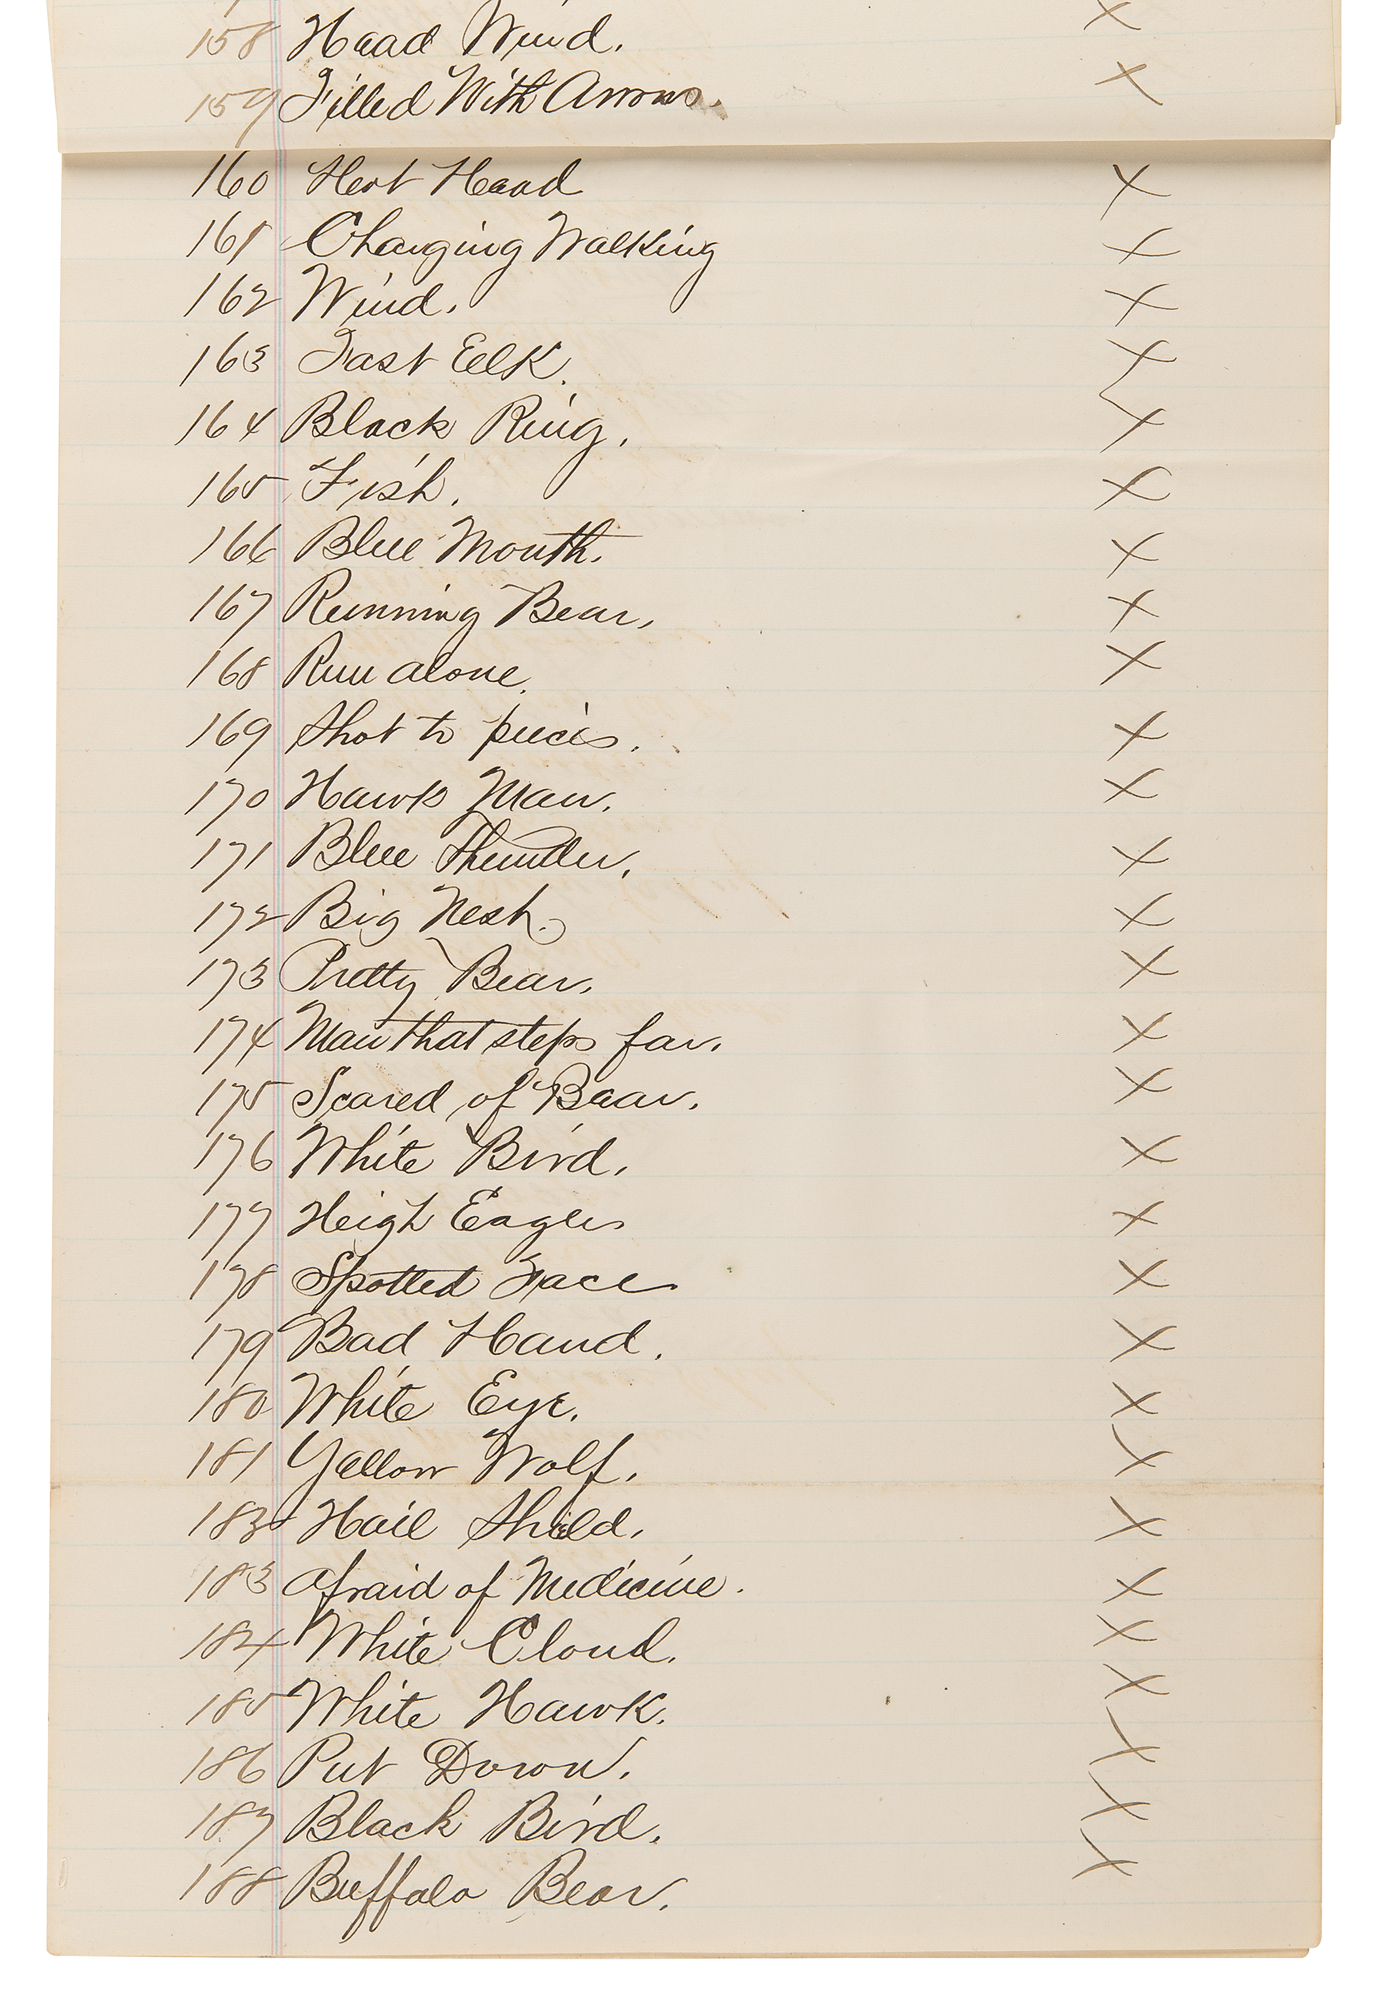 158 Haad Wind. X
159 Filled With Arrows. X
160 Hot Haad X
161 Changing Walking X
162 Wind. X
163 Fast Eelk. X
164 Black Ring. X
165 Fish. X
166 Blue Mouth. X
167 Running Bear, X
168 Run alone. X
169 Shot to pieces. X
170 Hawk Man. X
171 Blue Thunder. X
172 Big Nest. X
173 Pretty Bear. X
174 Man that steps far. X
175 Scared of Baar. X
176 White Bird. X
177 Heigh Eagles X
178 Spotted Face X
179 Bad Hand. X
180 White Eye. X
181 Yallow Wolf. X
182 Hail Shield. X
183 Afraid of Medicine. X
184 White Cloud. X
185 White Hawk. X
186 Put Down. X
187 Black Bird. X
188 Buffalo Bear. X